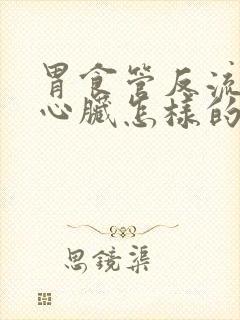 胃食管反流
心臓怎樣的
思鏡渠